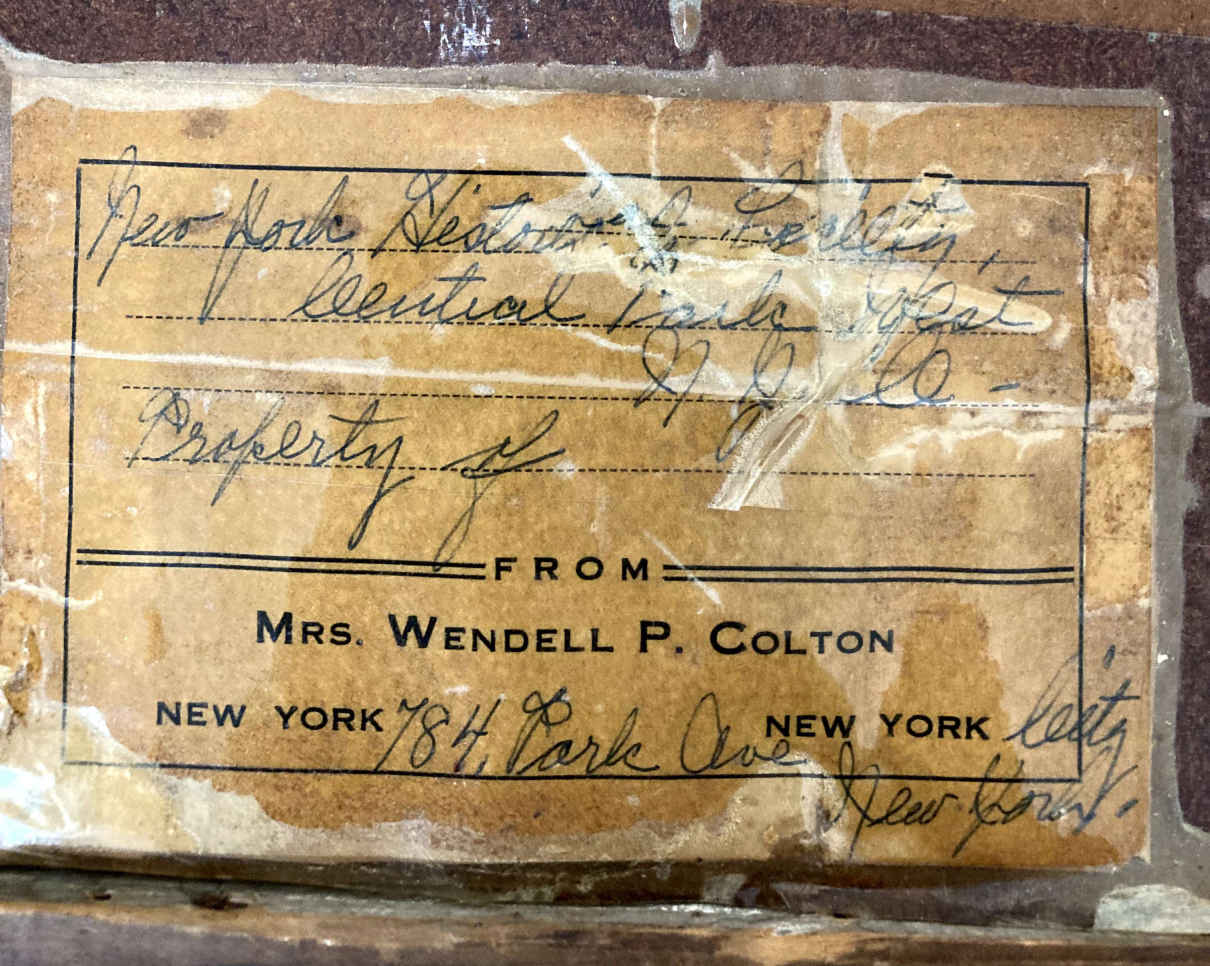 New York Historical Society,
Central Park West
N.Y.
Property of
FROM
MRS. WENDELL P. COLTON
NEW YORK 784, Park Ave NEW YORK City
New York.